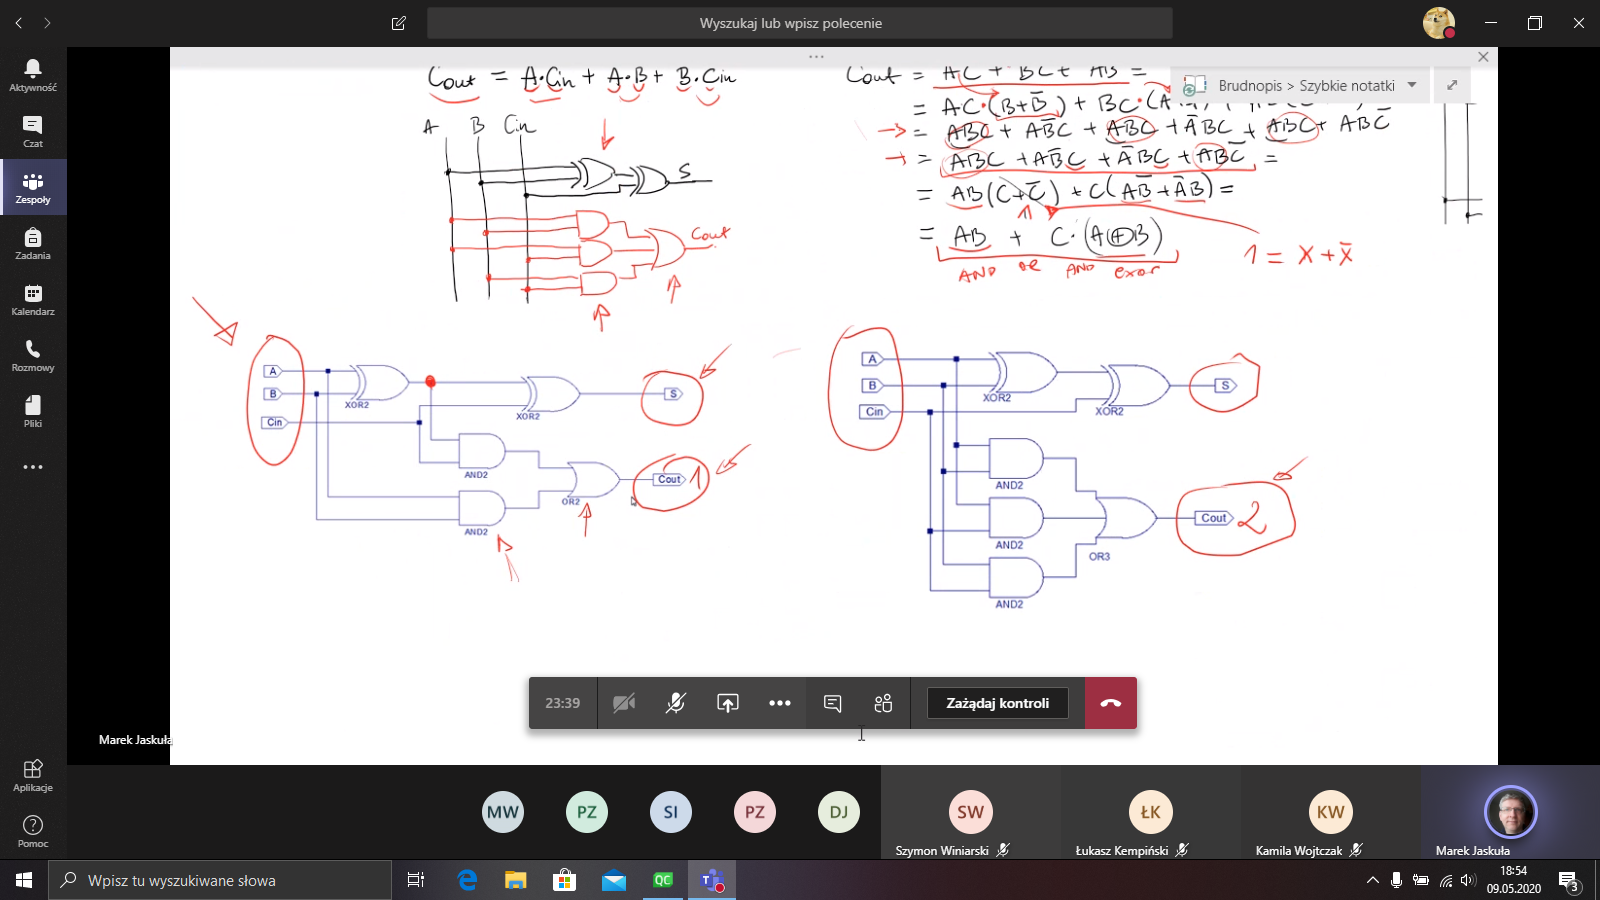 Wyszukaj lub wpisz polecenie
Aktywność
Czat
Zespoły
Zadania
Kalendarz
Rozmowy
Pliki
Aplikacje
Pomoc
Brudnopis > Szybkie notatki
Cout = A·Cin + A·B + B·Cin
A B Cin
S
Cout
Cout = AC + BC + AB =
= AC·(B+B̅) + BC·(A
= ABC + AB̅C + ABC + A̅BC + ABC + ABC̅
= ABC + AB̅C + A̅BC + ABC̅ =
= AB(C+C̅) + C(AB̅+A̅B) =
1
= AB + C·(A⊕B)
AND OR AND exor
1 = X + X̅
A
B
Cin
XOR2
XOR2
S
AND2
AND2
OR2
Cout 1
A
B
Cin
XOR2
XOR2
S
AND2
AND2
AND2
OR3
Cout 2
23:39
Zażądaj kontroli
Marek Jaskuła
MW
PZ
SI
PZ
DJ
SW
Szymon Winiarski
ŁK
Łukasz Kempiński
KW
Kamila Wojtczak
Marek Jaskuła
Wpisz tu wyszukiwane słowa
QC
T
18:54
09.05.2020
3